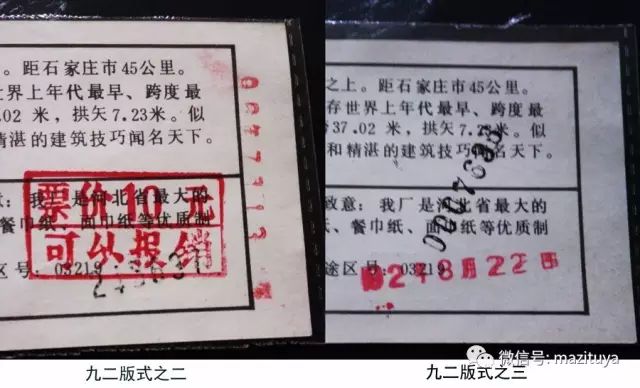 。距石家庄市45公里。
世界上年代最早、跨度最
02 米，拱矢7.23米。似
精湛的建筑技巧闻名天下。
票价10元
可以报销
意：我厂是河北省最大的
餐巾纸、面巾纸等优质制
区号：03219
之上。距石家庄市45公里。
存世界上年代最早、跨度最
37.02 米，拱矢7.23米。似
和精湛的建筑技巧闻名天下。
致意：我厂是河北省最大的
、餐巾纸、面巾纸等优质制
途区号：03219
8月22日
微信号: mazituya
九二版式之二
九二版式之三